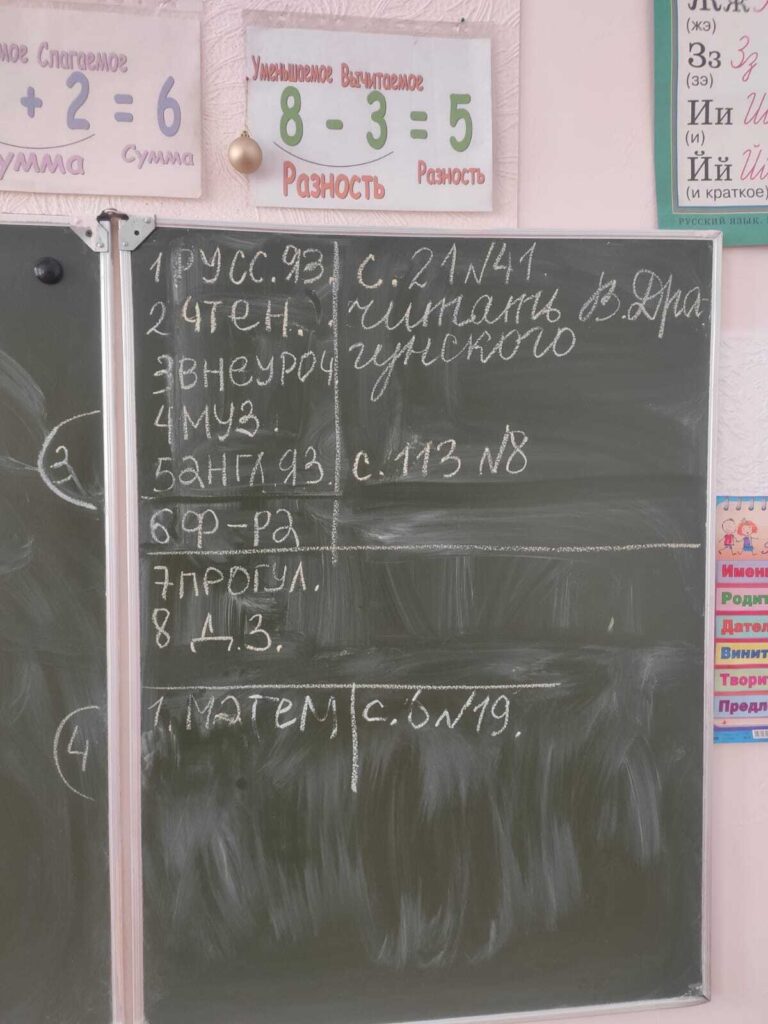 мое Слагаемое
+ 2 = 6
умма Сумма
Уменьшаемое Вычитаемое
8 - 3 = 5
Разность Разность
Жж
(жэ)
Зз Зз
(зэ)
Ии
(и)
Йй
(и краткое)
РУССКИЙ ЯЗЫК.
1 РУСС. ЯЗ. с. 21 №41.
2 ЧТЕН. читать В. Дра-
гунского
3 ВНЕУРОЧ
4 МУЗ.
5 АНГЛ. ЯЗ. с. 113 №8
6 Ф-РА
7 ПРОГУЛ.
8 Д.З.
3
1. МАТЕМ с. 6 №19.
4
Имени
Родит
Дател
Винит
Твори
Предл